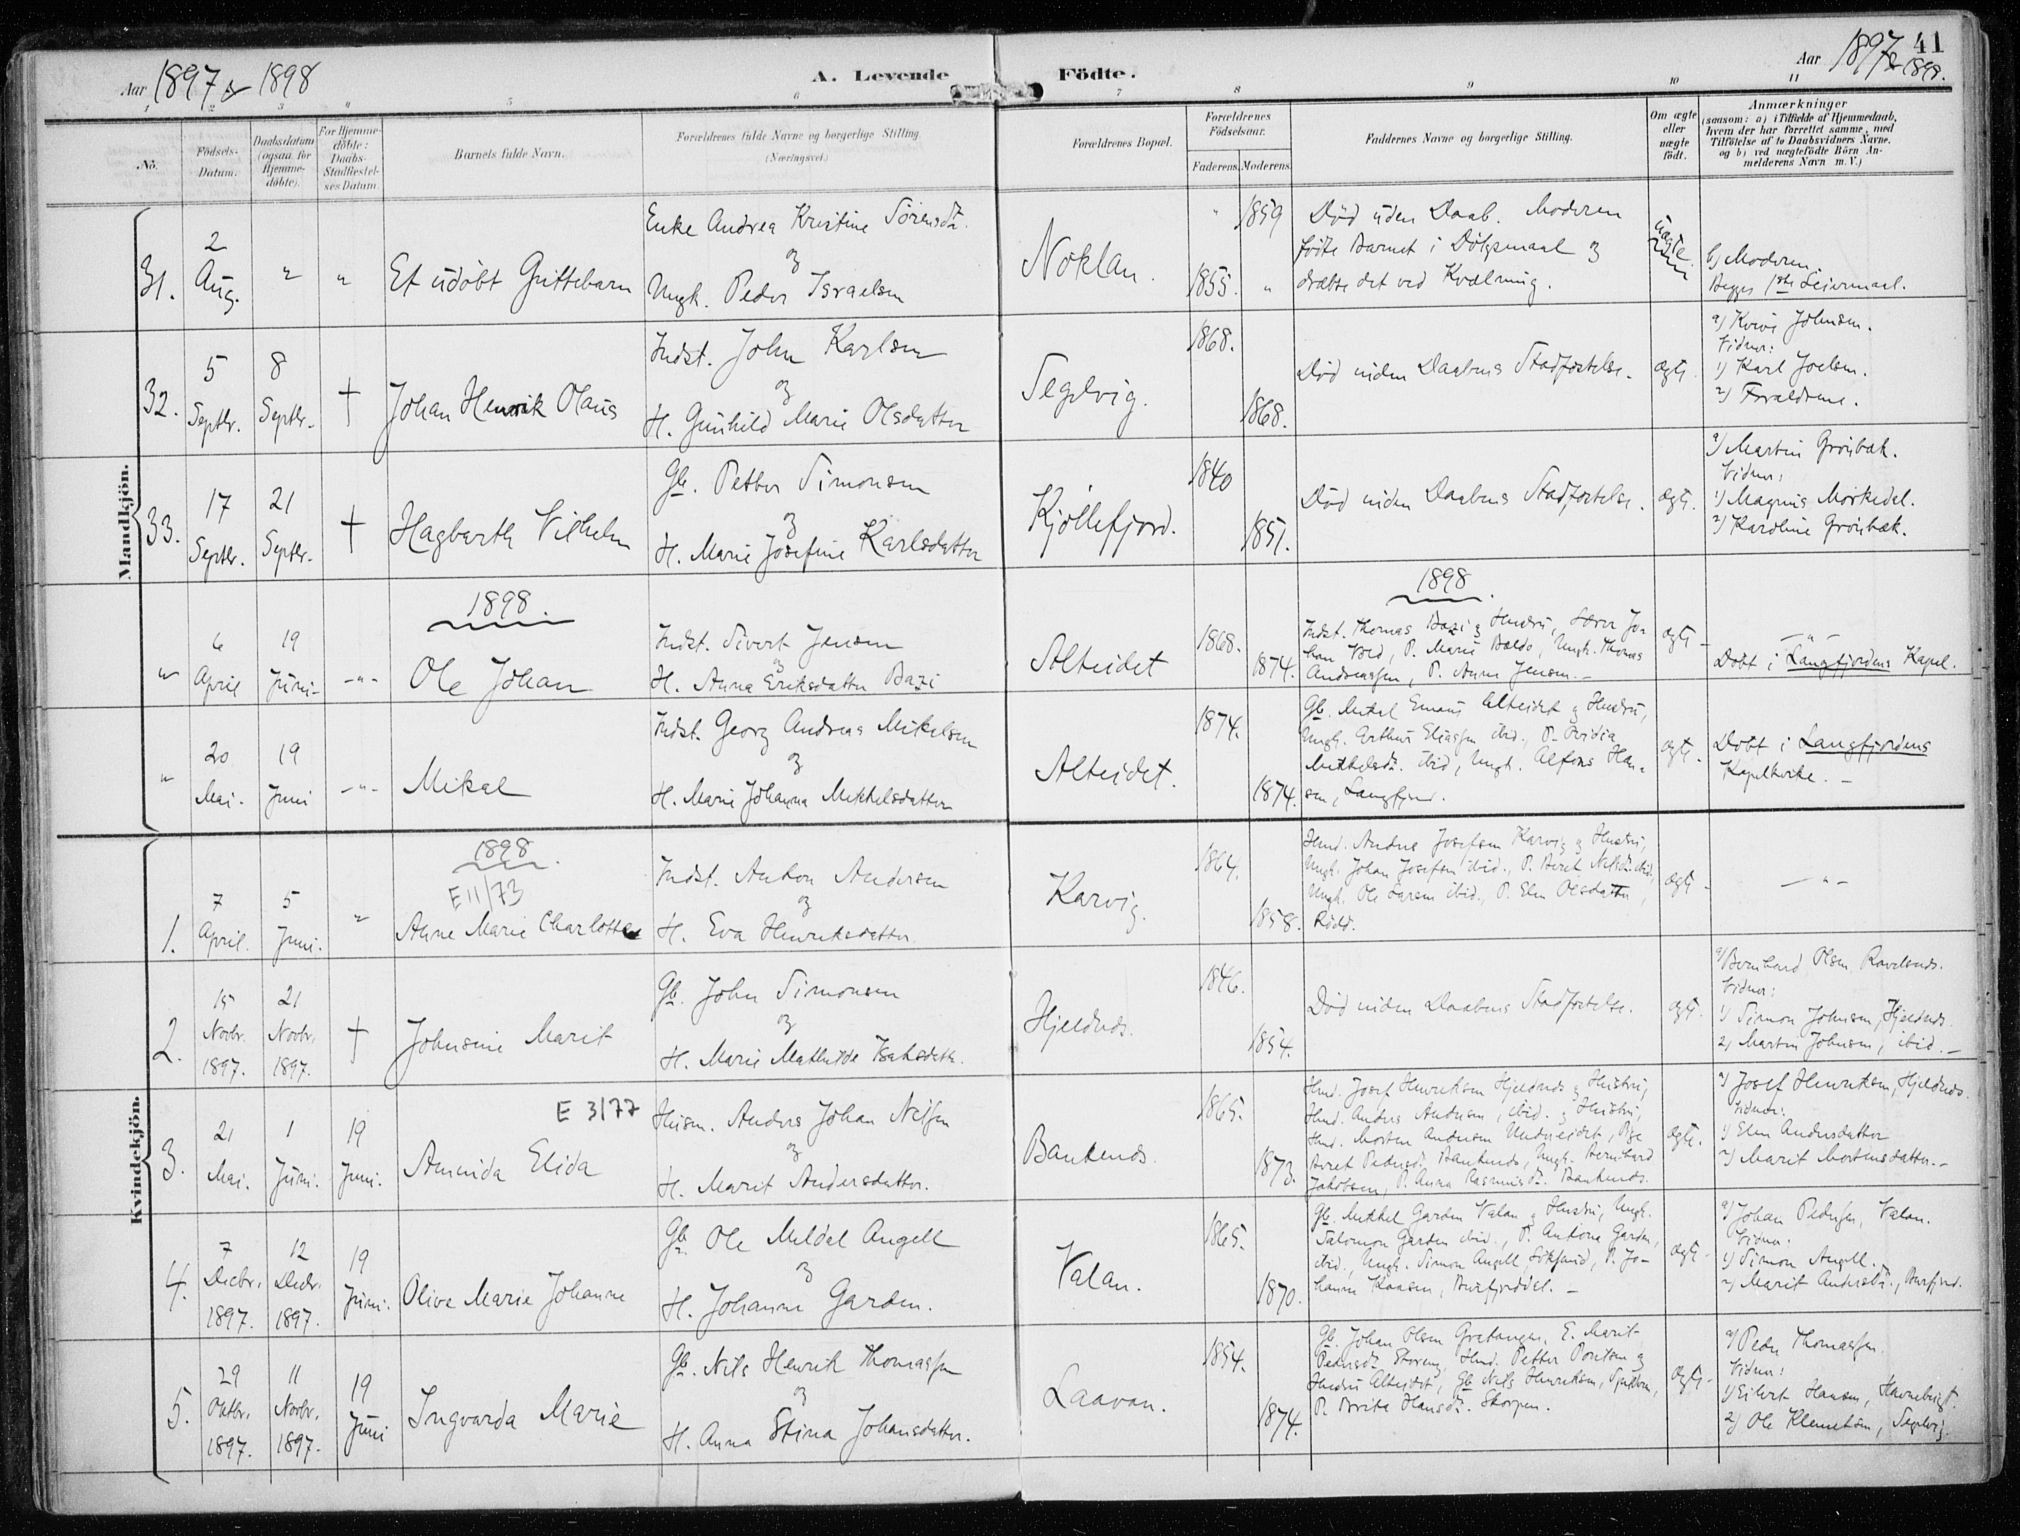 Aar 1897 & 1898
A. Levende Födte.
Aar 1897 & 1898.
41
1 2 3 4 5 6 7 8 9 10 11
No.
Födsels-
Datum.
Daabsdatum
(ogsaa for
Hjemme-
döbte).
For Hjemme-
döbte:
Daabs-
Stadfæstel-
ses Datum.
Barnets fulde Navn.
Forældrenes fulde Navne og borgerlige Stilling
(Næringsvei.)
Forældrenes Bopæl.
Forældrenes
Födselsaar.
Faderens. Moderens.
Faddernes Navne og borgerlige Stilling.
Om ægte
eller
uægte
födt.
Anmærkninger
(saasom: a) i Tilfælde af Hjemmedaab,
hvem der har forrettet samme, med
Tilföielse af to Daabsvidners Navne,
og b) ved uægtefödte Börn An-
melderens Navn m. V.)
Mandkjön.
31.
2
Aug.
"
"
Et udöbt Guttebarn
Enke Andrea Kristine Sörensdr.
og
Ungk. Peder Israelsen
Noklan.
" 1859
1855. "
Död uden Daab. Moderen
födte Barnet i Dölgsmaal og
dræbte det ved Kvælning.
uægte
b) Moderen.
Begges 1ste Leiermaal.
32.
5
Septbr.
8
Septbr.
†
Johan Henrik Olaus
Indst. John Karlsen
og
H. Gunhild Marie Olsdatter
Segelvig.
1868.
1868.
Död inden Daabens Stadfæstelse.
ægte.
a) Johnsen.
Vidner:
1) Karl Joelsen.
2) Forældrene.
33.
17
Septbr.
21
Septbr.
†
Hagbarth Vilhelm
Gb. Petter Simonsen
og
H. Marie Josefine Karlsdatter
Kjöllefjord.
1840
1851.
Död inden Daabens Stadfæstelse.
ægte.
a) Martin Grönbæk.
Vidner:
1) Magnus Mörkedal.
2) Karoline Grönbæk.
1898.
1898.
"
6
April
19
Juni
-"-
Ole Johan
Indst. Sivert Jensen
og
H. Anna Eriksdatter Bazi
Alteidet
1868.
1874.
Indst. Thomas Bazi og Hustru, Jo-
han ibid, P. Marie Baldo, Ungk. Thomas
Andreassen, P. Anne Jensen.
ægte
-"-
Döbt i Langfjordens Kapel.
"
20
Mai.
19
Juni
-"-
Mikal
Indst. Georg Andreas Mikelsen
og
H. Marie Johanna Mikkelsdatter
Alteidet.
1874.
1874.
Gb. Mikal Emaus Alteidet og Hustru,
Ungk. Arthur Eliassen ibid., P.
Mikkelsdr. ibid, Ungk. Alfons Han-
sen, Langfjord.
ægte.
Döbt i Langfjordens
Kapelkirke.
Kvindekjön.
1898.
E 11/73
1.
7
April.
5
Juni.
"
Anne Marie Charlotte
Indst. Anton Andersen
og
H. Eva Henriksdatter.
Karvig.
1864.
1858.
Hmd. Andre Josefsen Karvig og Hustru,
Ungk. Johan Josefsen ibid., P. Beret ibid.,
Ungk. Ole Larsen ibid., P. Elen Olsdatter,
ægte
-"-
2.
15
Novbr.
1897.
21
Novbr.
1897.
†
Johnsine Marit
Gb. John Simonsen
og
H. Marie Mathilde Isaksdatter.
Hjeldnds.
1846.
1854.
Död inden Daabens Stadfæstelse.
ægte.
a) Bernhard Olsen
Vidner:
1) Simon Johnsen, Hjeldnds.
2) Martin Johnsen, ibid.
3.
21
Mai.
1
Juni.
19
Juni.
E 3/77
Amanda Elida
Husm. Anders Johan Nilsen
og
H. Marit Andersdatter.
Bankends.
1865.
1873.
Hmd. Josef Henriksen Hjeldnds og Hustru,
Hmd. Anders Andersen, ibid. og Hustru,
Hmd. Morten Andersen Undereidet, Pige
Beret Pedersdr. Bankends, Ungk. Bernhard
Jakobsen, P. Anna Rasmusdr. Bankends.
ægte.
a) Josef Henriksen, Hjeldnds.
Vidner:
1) Elen Andersdatter
2) Marit Mortensdatter.
4.
7
Decbr.
1897.
12
Decbr.
1897.
19
Juni.
Olive Marie Johanne
Gb. Ole Meldal Angell
og
H. Johanne Garden.
Valan.
1865.
1870.
Gb. Mikkel Garden Valan og Hustru, Ungk.
Salomon Garden ibid., P. Antona Garden,
ibid., Ungk. Simon Angell, P. Jo-
hanne Hansen, Burfjorddal.
ægte
a) Johan Pedersen, Valan.
Vidner:
1) Simon Angell.
2) Marit Andersdr., Burfjord.
5.
29
Oktbr.
1897.
11
Novbr.
1897.
19
Juni
Ingvarda Marie
Gb. Nils Henrik Thomassen
og
H. Anna Stina Johansdatter.
Laavan.
1854.
1874.
Gb. Johan Olsen Gratangen, E. Marit
Pedersdr. Storeng, Hmd. Petter Poulsen og
Hustru Alteidet, Gb. Nils Henriksen,
P. Berita Hansdr. Skorpen.
ægte
a) Peder Thomassen.
Vidner:
1) Eilert Hansen, Havnebugt.
2) Ole Klemetsen, Segelvig.